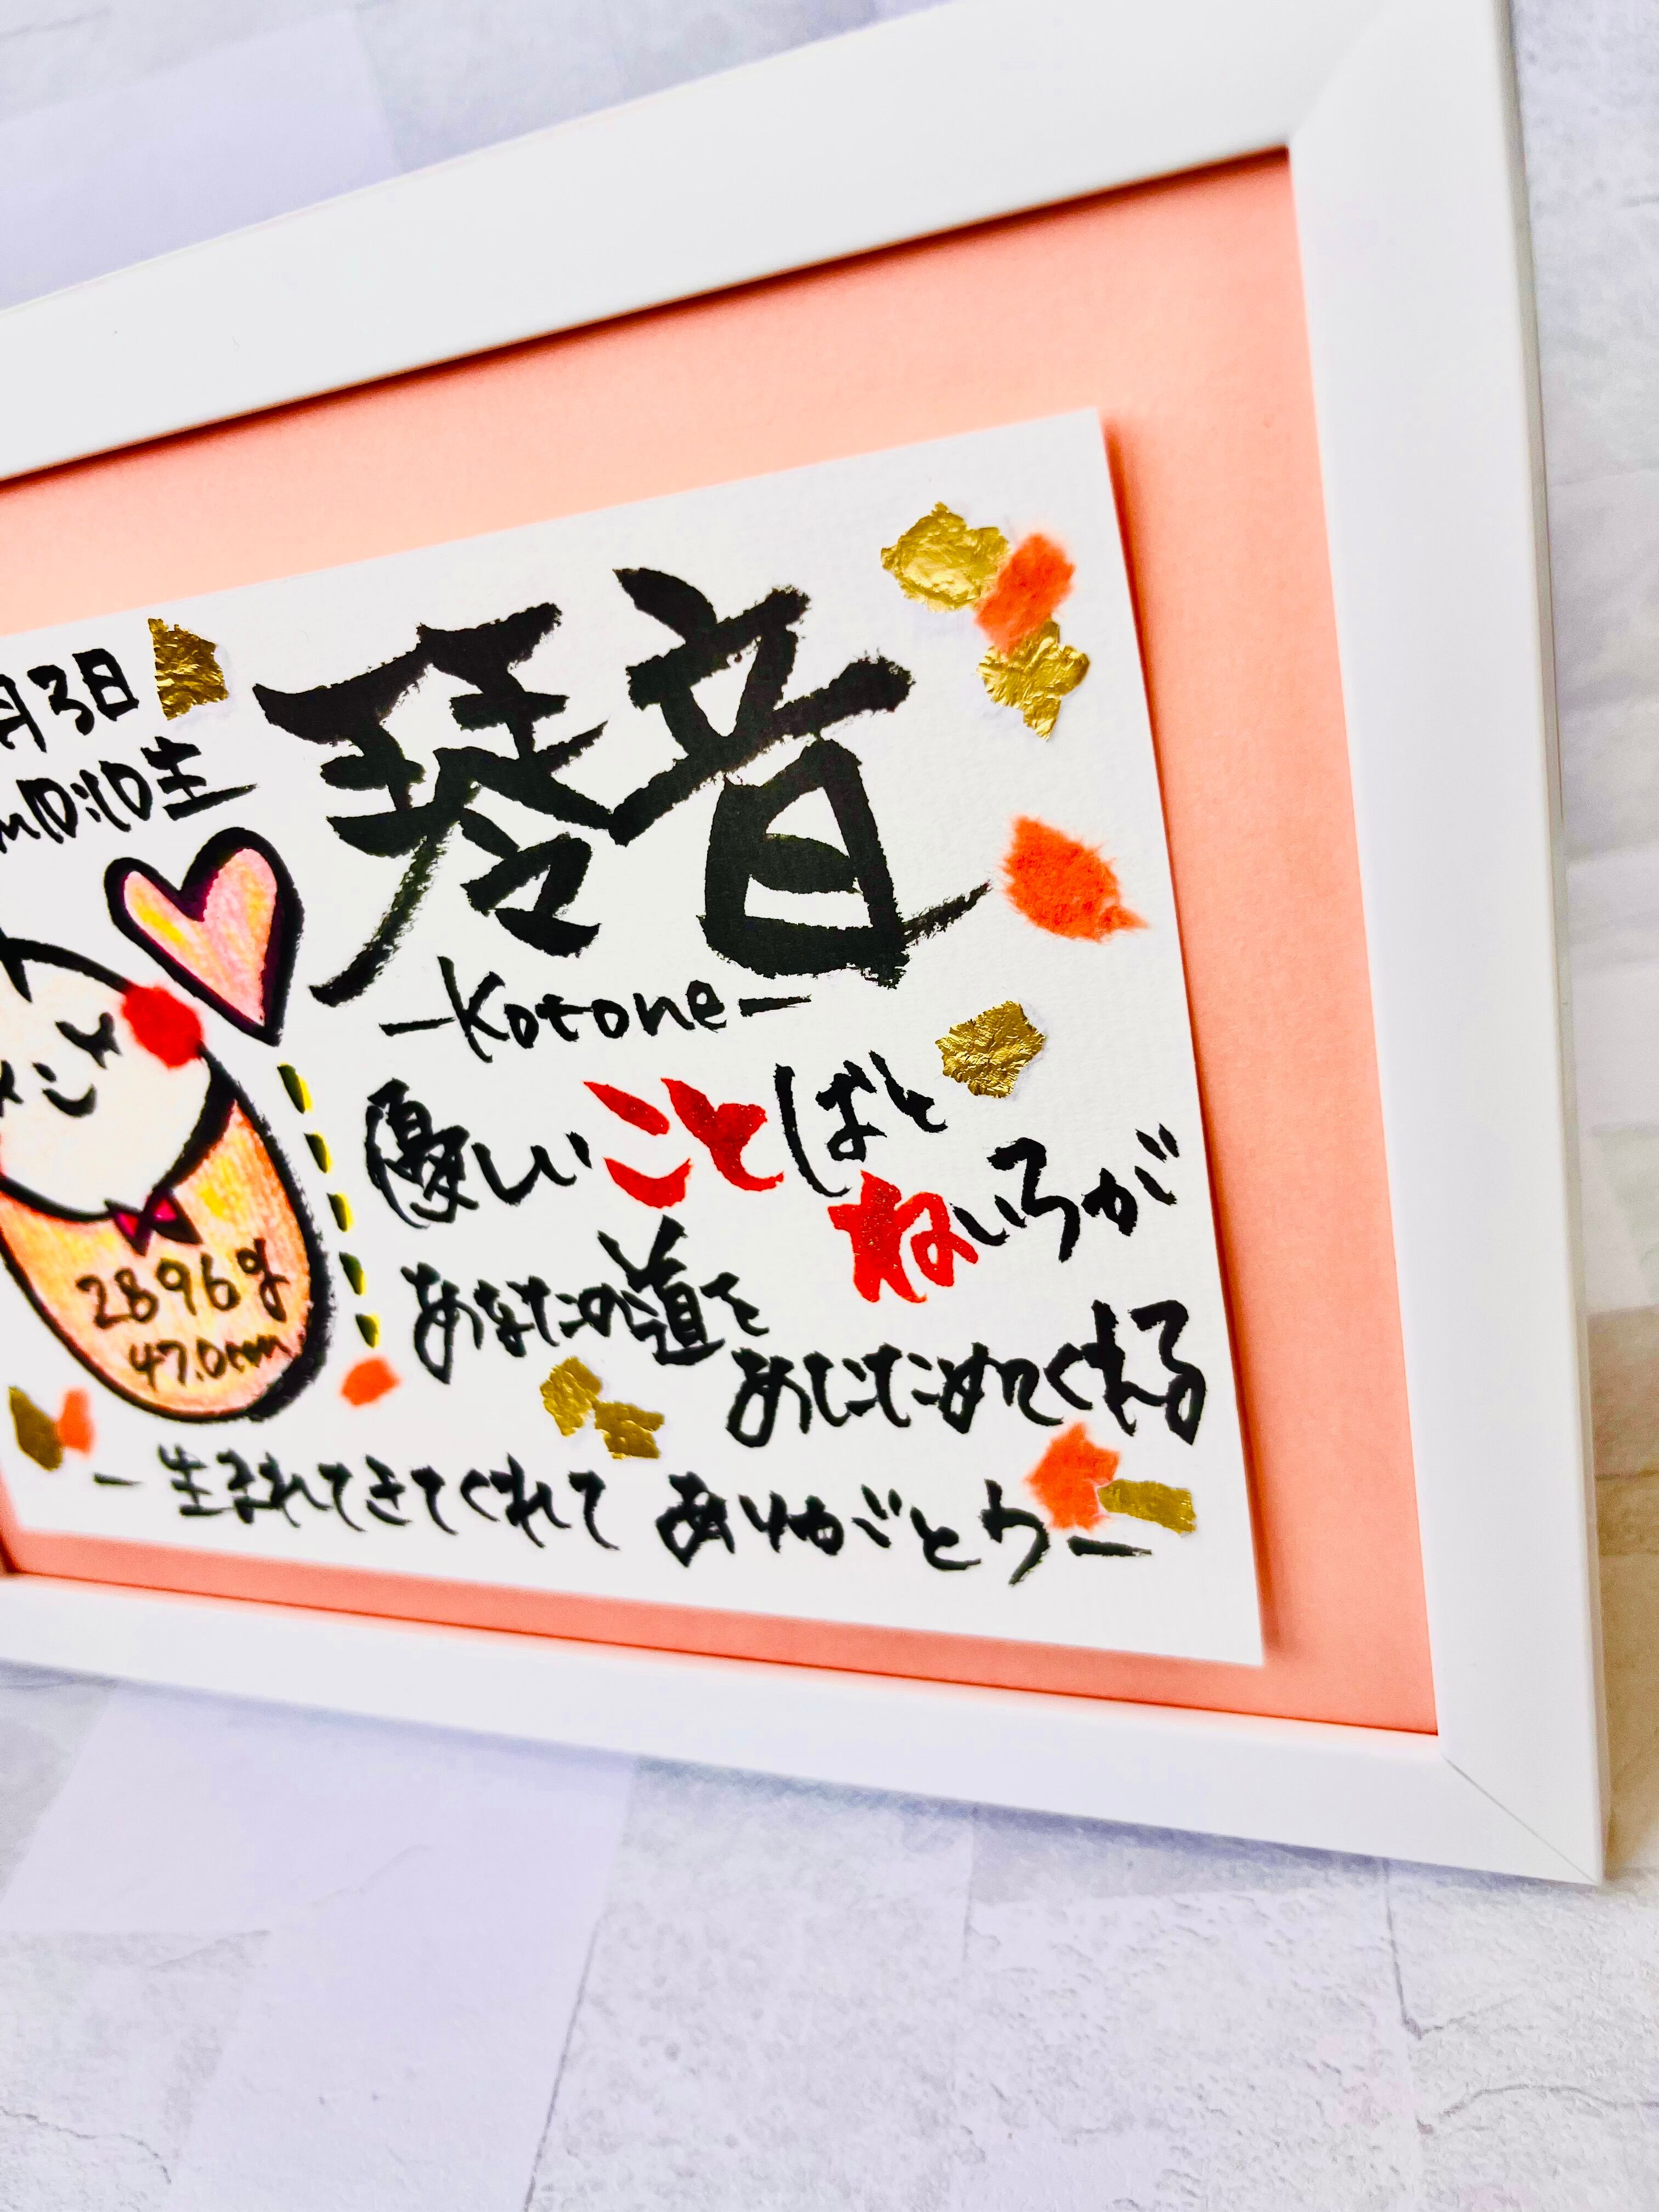 月3日
10:10生
琴音
-Kotone-
優しいことばと
ねいろが
あなたの道を
あたためてくれる
2896g
47.0cm
-生まれてきてくれて ありがとう-